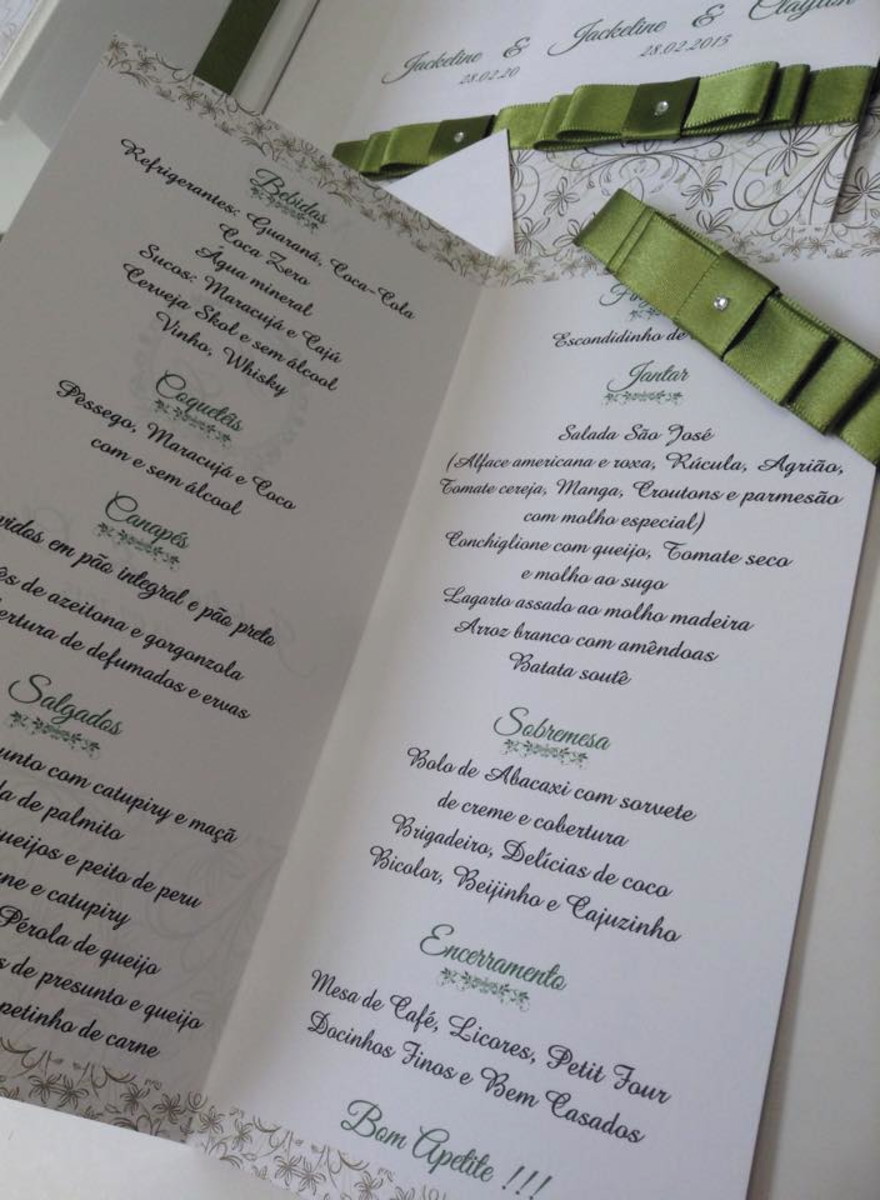 Jackeline &
28.02.20
Jackeline & Clayton
28.02.2015
Bebidas
Refrigerantes: Guaraná, Coca-Cola
Coca Zero
Água mineral
Sucos: Maracujá e Cajú
Cerveja Skol e sem álcool
Vinho, Whisky
Coquetéis
Pêssego, Maracujá e Coco
com e sem álcool
Canapés
em pão integral e pão preto
de azeitona e gorgonzola
de defumados e ervas
Salgados
com catupiry e maçã
de palmito
e peito de peru
e catupiry
Pérola de queijo
de presunto e queijo
de carne
Escondidinho de
Jantar
Salada São José
(Alface americana e roxa, Rúcula, Agrião,
Tomate cereja, Manga, Croutons e parmesão
com molho especial)
Conchiglione com queijo, Tomate seco
e molho ao sugo
Lagarto assado ao molho madeira
Arroz branco com amêndoas
Batata soutê
Sobremesa
Bolo de Abacaxi com sorvete
de creme e cobertura
Brigadeiro, Delícias de coco
Bicolor, Beijinho e Cajuzinho
Encerramento
Mesa de Café, Licores, Petit Four
Docinhos Finos e Bem Casados
Bom Apetite !!!